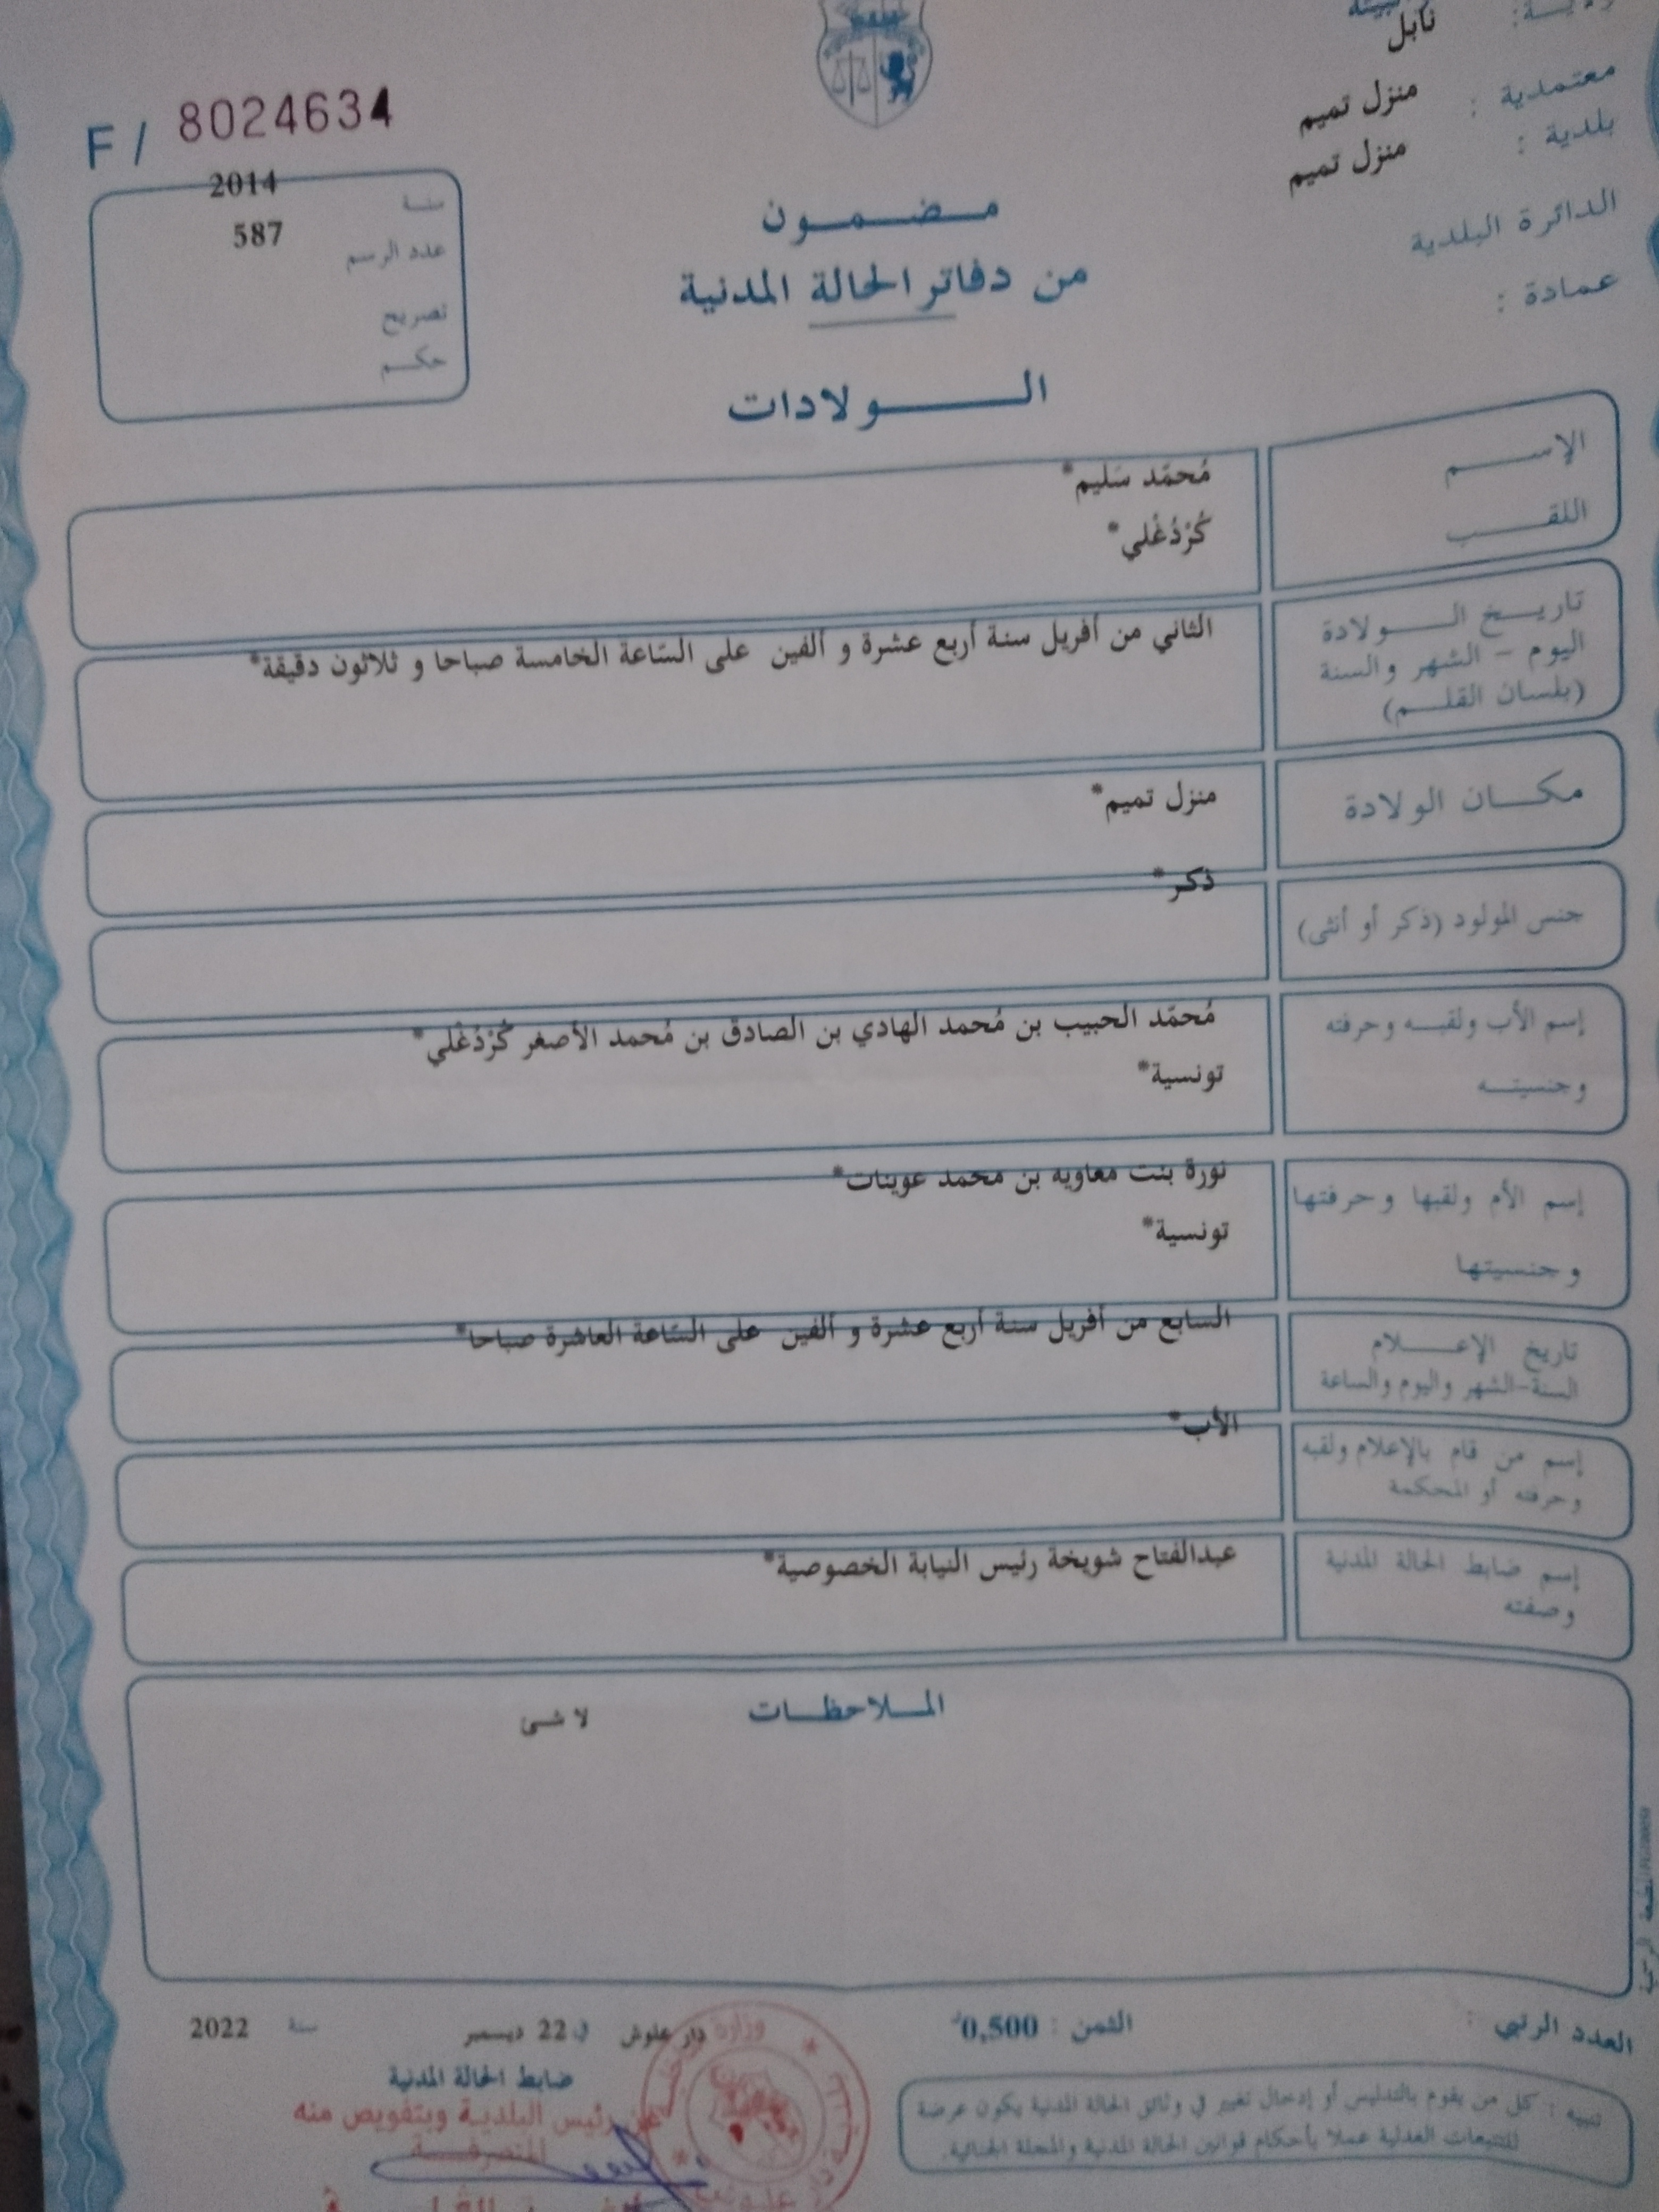 نابل
معتمدية : منزل تميم
بلدية : منزل تميم
الدائرة البلدية
عمادة :
F / 8024634
سنة 2014
عدد الرسم 587
تصريح
حكم
مضمون
من دفاتر الحالة المدنية
الولادات
الإسم مُحمّد سَليم*
اللقب كُرْدُغْلي*
تاريخ الولادة
اليوم - الشهر والسنة
(بلسان القلم)
الثاني من أفريل سنة أربع عشرة و ألفين على السّاعة الخامسة صباحا و ثلاثون دقيقة*
مكان الولادة منزل تميم*
جنس المولود (ذكر أو أنثى) ذكر*
إسم الأب ولقبه وحرفته
وجنسيته
مُحمّد الحبيب بن مُحمد الهادي بن الصادق بن مُحمد الأصغر كُرْدُغْلي*
تونسية*
إسم الأم ولقبها وحرفتها
وجنسيتها
نورة بنت معاويه بن محمد عوينات*
تونسية*
تاريخ الإعلام
السنة-الشهر واليوم والساعة
السابع من أفريل سنة أربع عشرة و ألفين على السّاعة العاشرة صباحا*
إسم من قام بالإعلام ولقبه
وحرفته أو المحكمة
الأب*
إسم ضابط الحالة المدنية
وصفته
عبدالفتاح شويخة رئيس النيابة الخصوصية*
الملاحظات لا شئ
العدد الرتبي :
الثمن : 0,500
دار علوش في 22 ديسمبر سنة 2022
ضابط الحالة المدنية
عن رئيس البلدية وبتفويض منه
المتصرفة
تنبيه : كل من يقوم بالتدليس أو إدخال تغيير في وثائق الحالة المدنية يكون عرضة
للتتبعات العدلية عملا بأحكام قوانين الحالة المدنية والمجلة الجنائية.